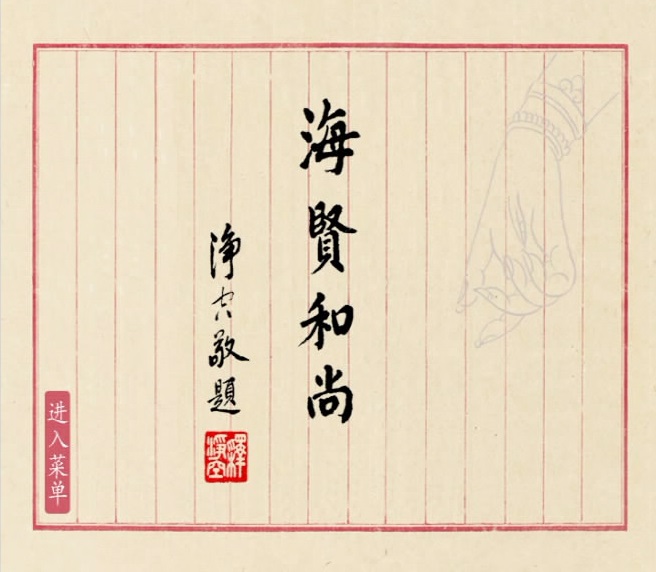 海賢和尚
淨空敬題
釋淨空
进入菜单